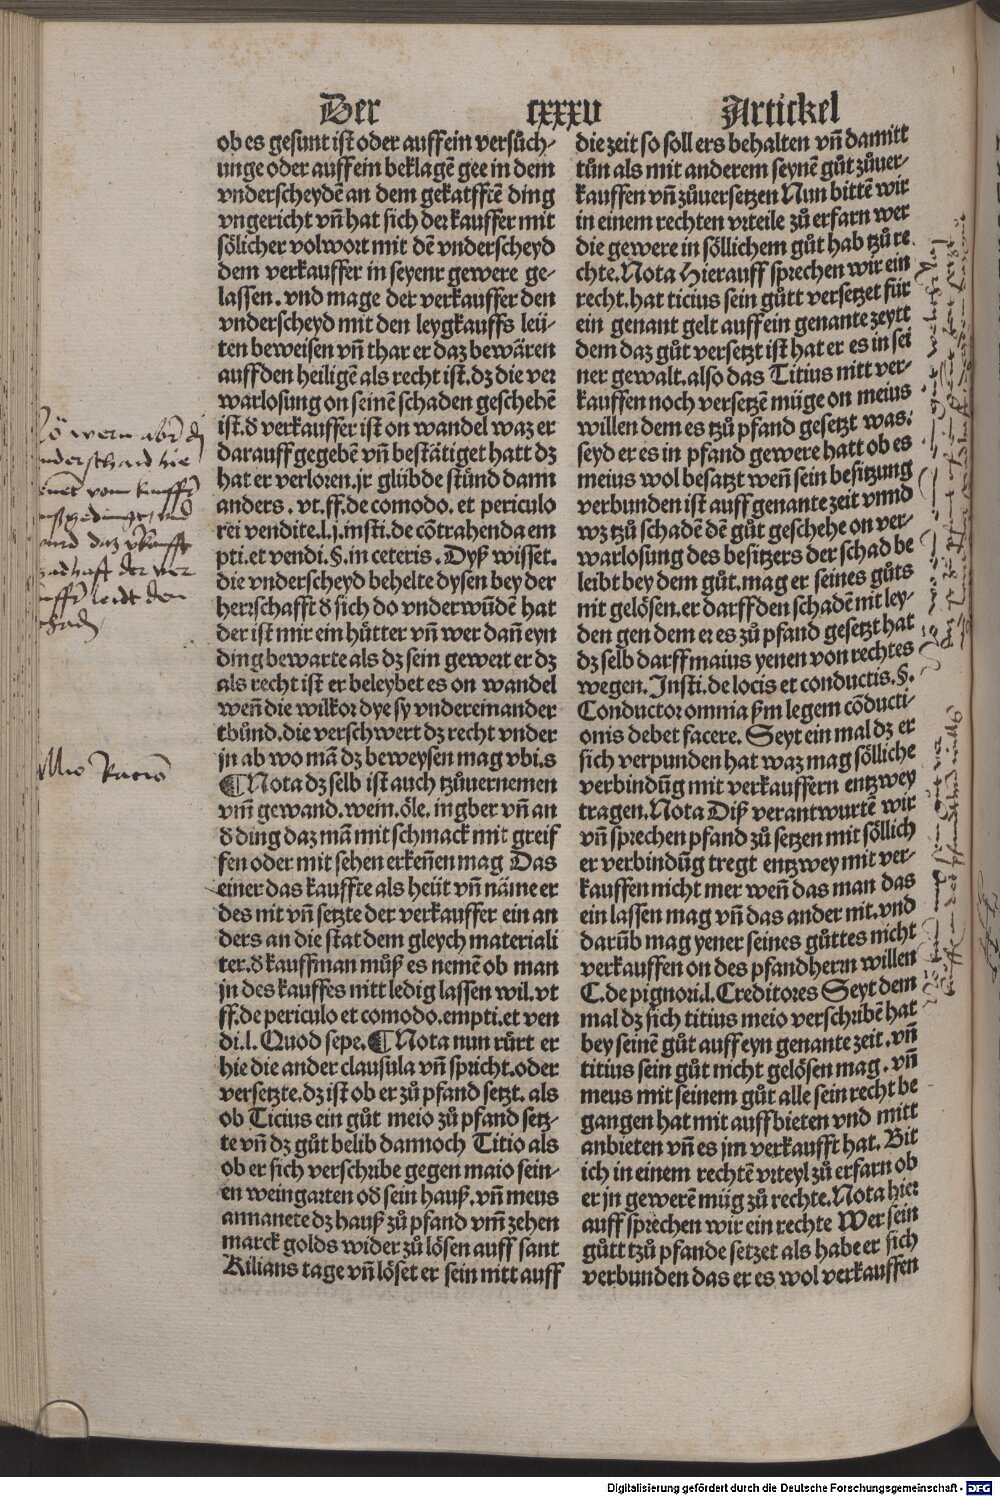 Der cxxxv Artickel
ob es gesunt ist oder auff ein versůch-
unge oder auff ein beklagē gee in dem
vnderscheydē an dem gekaufftē ding
vngericht vn̄ hat sich der kauffer mit
sőlicher volwort mit dē vnderscheyd
dem verkauffer in seyenr gewere ge-
lassen. vnd mage der verkauffer den
vnderscheyd mit den leygkauffs leü-
ten beweisen vn̄ thar er daz bewåren
auff den heiligē als recht ist. dz die ver
warlosung on seinē schaden geschehē
ist. d̕ verkauffer ist on wandel waz er
darauff gegebē vn̄ bestätiget hatt dz
hat er verloren. jr glübde stůnd dann
anders. vt. ff. de comodo. et periculo
rei vendite. l. j. insti. de cōtrahenda em
pti. et vendi. §. in ceteris. Dyß wisset.
die vnderscheyd behelte dysen bey der
herrschafft d̕ sich do vnderwūdē hat
der ist mir ein hůtter vn̄ wer dañ eyn
ding bewarte als dz sein gewert er dz
als recht ist er beleybet es on wandel
weñ die wilkor dye sy vndereinander
thůnd. die verschwert dz recht vnder
jn ab wo mā dz beweysen mag vbi. s
¶ Nota dz selb ist auch tzůuernemen
vm̄ gewand. wein. őle. ingber vn̄ an
d̕ ding daz mā mit schmack mit greif
fen oder mit sehen erkeñen mag Das
einer das kauffte als heüt vn̄ näme er
des nit vn̄ setzte der verkauffer ein an
ders an die stat dem gleych materiali
ter. d̕ kauffman můß es nemē ob man
jn des kauffes nitt ledig lassen wil. vt
ff. de periculo et comodo. empti. et ven
di. l. Quod sepe. ¶ Nota nun růrt er
hie die ander clausula vn̄ spricht. oder
versetzte. dz ist ob er zů pfand setzt. als
ob Ticius ein gůt meio zů pfand setz-
te vn̄ dz gůt belib dannoch Titio als
ob er sich verschribe gegen maio sein-
en weingarten od̕ sein hauß. vn̄ meus
annanete dz hauß zů pfand vm̄ zehen
marck golds wider zů lősen auff sant
Kilians tage vn̄ lőset er sein nitt auff
die zeit so soll ers behalten vn̄ damitt
tůn als mit anderem seynē gůt zůuer-
kauffen vn̄ zůuersetzen Nun bittē wir
in einem rechten vrteile zů erfarn wer
die gewere in sőllichem gůt hab tzů re
chte. Nota Hierauff sprechen wir ein
recht. hat ticius sein gůtt versetzet für
ein genant gelt auff ein genante zeytt
dem daz gůt versetzt ist hat er es in sei
ner gewalt. also das Titius nitt ver-
kauffen noch versetzē müge on meius
willen dem es tzů pfand gesetzt was.
seyd er es in pfand gewere hatt ob es
meius wol besatzt weñ sein besitzung
verbunden ist auff genante zeit vnnd
wz tzů schadē dē gůt geschehe on ver-
warlosung des besitzers der schad be
leibt bey dem gůt. mag er seines gůts
nit gelősen. er darff den schadē nit ley-
den gen dem er es zů pfand gesetzt hat
dz selb darff maius yenen von rechtes
wegen. Insti. de locis et conductis. §.
Conductor omnia ꝑm legem cōducti-
onis debet facere. Seyt ein mal dz er
sich verpunden hat waz mag sőlliche
verbindūg mit verkauffern entzwey
tragen. Nota Diß verantwurtē wir
vn̄ sprechen pfand zů setzen mit sőllich
er verbindūg tregt entzwey mit ver-
kauffen nicht mer weñ das man das
ein lassen mag vn̄ das ander nit. vnd
darūb mag yener seines gůttes nicht
verkauffen on des pfandherrn willen
C. de pignori. l. Creditores Seyt dem
mal dz sich titius meio verschribē hat
bey seinē gůt auff eyn genante zeit. vn̄
titius sein gůt nicht gelősen mag. vn̄
meus mit seinem gůt alle sein recht be
gangen hat mit auffbieten vnd mitt
anbieten vn̄ es jm verkaufft hat. Bit
ich in einem rechtē vrteyl zů erfarn ob
er jn gewerē müg zů rechte. Nota hier
auff sprechen wir ein rechte Wer sein
gůtt tzů pfande setzet als habe er sich
verbunden das er es wol verkauffen
Digitalisierung gefördert durch die Deutsche Forschungsgemeinschaft - DFG